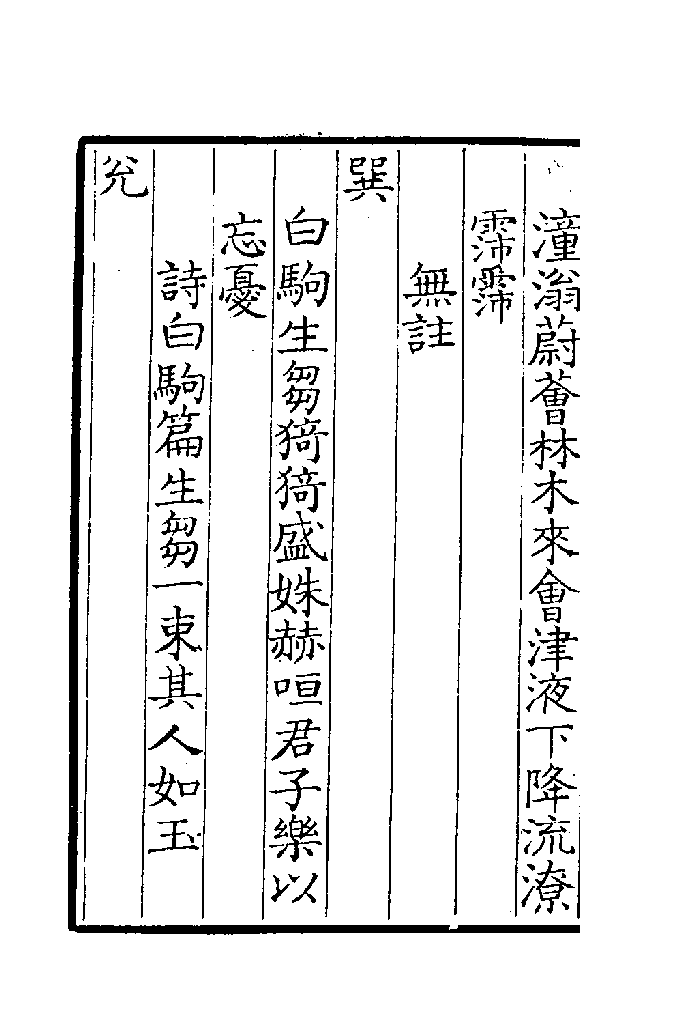 潼滃蔚薈林木來會津液下降流潦
霈霈
無註
巽
白駒生芻猗猗盛姝赫咺君子樂以
忘憂
詩白駒篇生芻一束其人如玉
兊